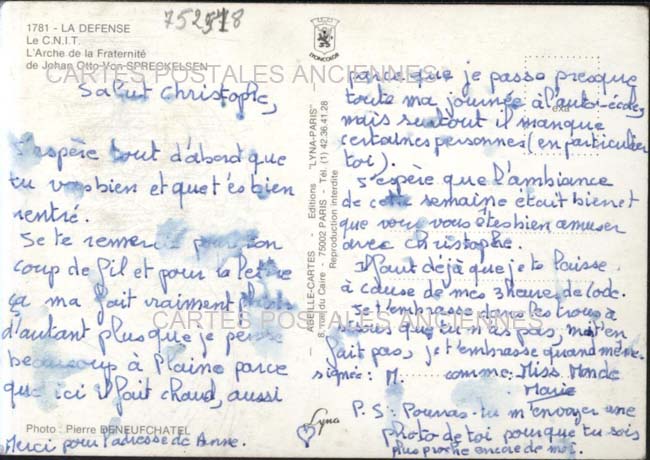 752978
1781 - LA DEFENSE
Le C.N.I.T.
L'Arche de la Fraternité
de Johan Otto Von SPRECKELSEN
LYONCOLOR
CARTES POSTALES ANCIENNES
Salut Christophe,
J'espère tout d'abord que
tu vas bien et que t'es bien
rentré.
Je te remercie pour ton
coup de fil et pour la lettre
ça m'a fait vraiment plaisir
d'autant plus que je pense
beaucoup à Plaine parce
que ici il fait chaud, aussi
Photo : Pierre DENEUFCHATEL
Merci pour l'adresse de Anne.
ABEILLE-CARTES - Editions "LYNA-PARIS"
8, rue du Caire - 75002 PARIS - Tél. (1) 42.36.41.28
Reproduction interdite
Lyna
parce que je passe presque
toute ma journée à l'auto-école,
mais surtout il manque
certaines personnes (en particulier
toi).
J'espère que l'ambiance
de cette semaine était bien et
que vous vous êtes bien amuser
avec Christophe.
Il faut déjà que je te laisse
à cause de mes 3 heures de code.
Je t'embrasse dans les trous à
sous que tu n'as pas, m't'en
fait pas, je t'embrasse quand même.
signée : M. comme : Miss Monde
Marie
P.S : Pourras-tu m'envoyer une
photo de toi pour que tu sois
plus proche encore de moi.
CARTES POSTALES ANCIENNES